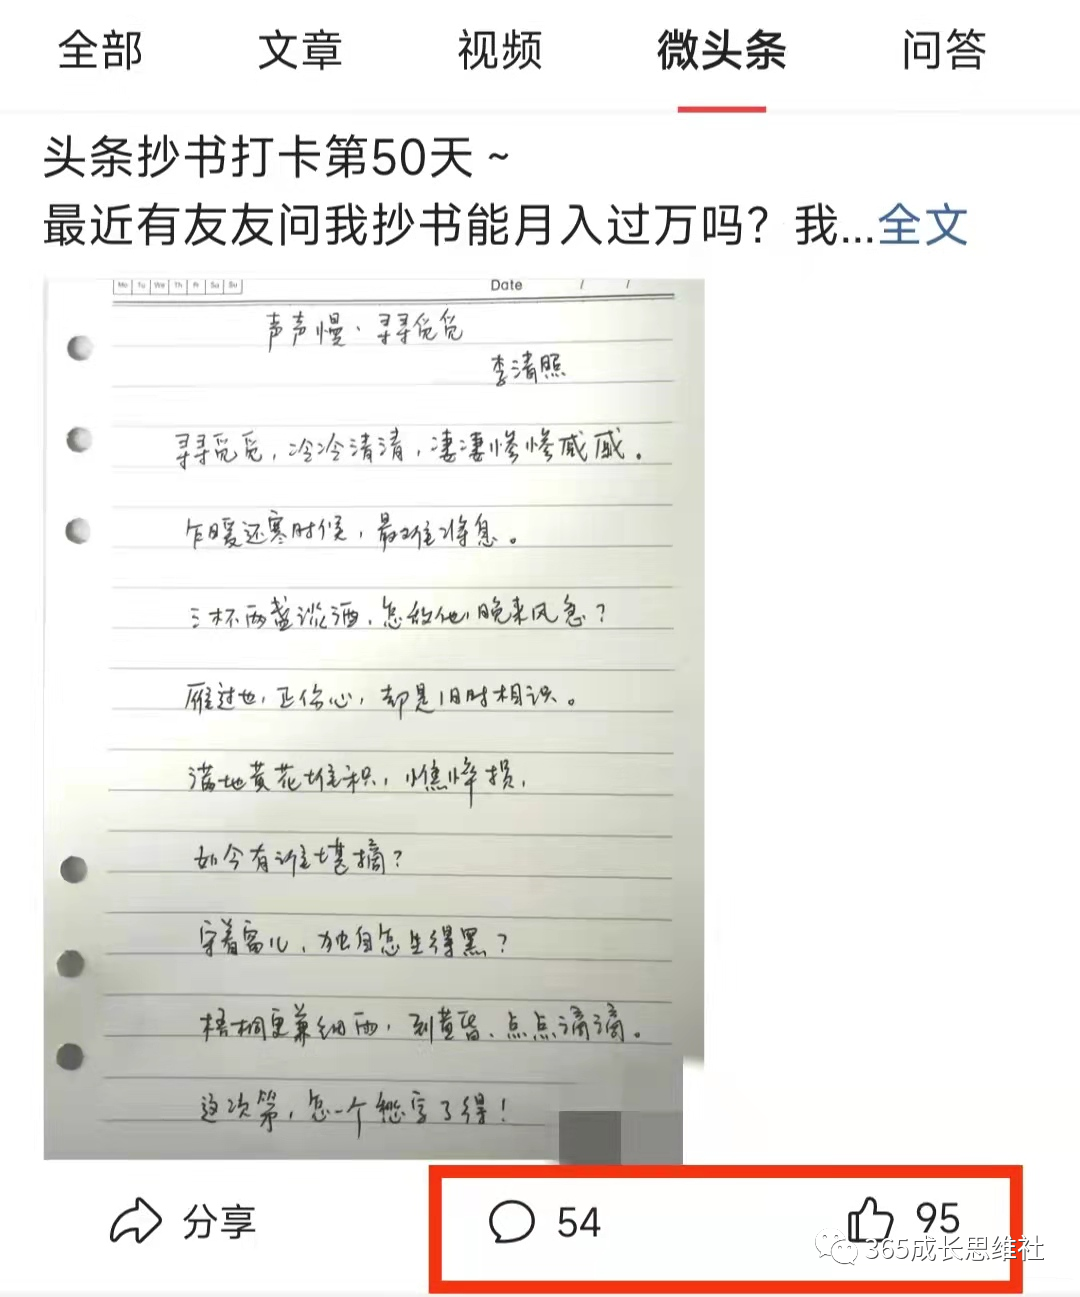 全部 文章 视频 微头条 问答
头条抄书打卡第50天~
最近有友友问我抄书能月入过万吗？我...全文
Mo Tu We Th Fr Sa Su Date / /
声声慢·寻寻觅觅
李清照
寻寻觅觅，冷冷清清，凄凄惨惨戚戚。
乍暖还寒时候，最难将息。
三杯两盏淡酒，怎敌他，晚来风急？
雁过也，正伤心，却是旧时相识。
满地黄花堆积，憔悴损，
如今有谁堪摘？
守着窗儿，独自怎生得黑？
梧桐更兼细雨，到黄昏、点点滴滴。
这次第，怎一个愁字了得！
分享 54 95
365成长思维社